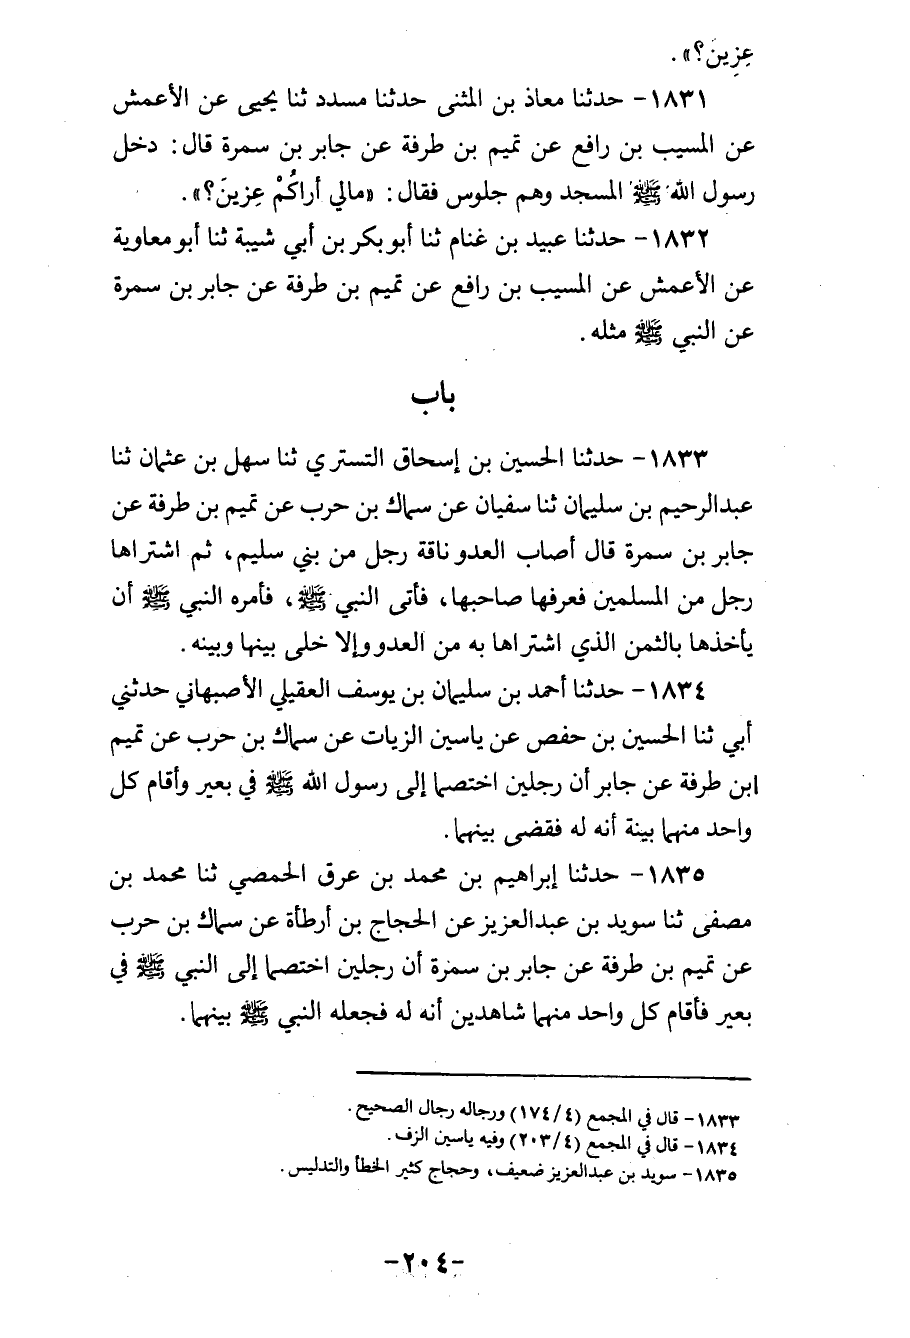 عِزِينَ؟» .
١٨٣١- حدثنا معاذ بن المثنى حدثنا مسدد ثنا يحيى عن الأعمش
عن المسيب بن رافع عن تميم بن طرفة عن جابر بن سمرة قال : دخل
رسول الله ﷺ المسجد وهم جلوس فقال : «مالي أراكُمْ عِزينَ؟» .
١٨٣٢- حدثنا عبيد بن غنام ثنا أبو بكر بن أبي شيبة ثنا أبو معاوية
عن الأعمش عن المسيب بن رافع عن تميم بن طرفة عن جابر بن سمرة
عن النبي ﷺ مثله .
باب
١٨٣٣- حدثنا الحسين بن إسحاق التستري ثنا سهل بن عثمان ثنا
عبدالرحيم بن سليمان ثنا سفيان عن سماك بن حرب عن تميم بن طرفة عن
جابر بن سمرة قال أصاب العدو ناقة رجل من بني سليم ، ثم اشتراها
رجل من المسلمين فعرفها صاحبها ، فأتى النبي ﷺ ، فأمره النبي ﷺ أن
يأخذها بالثمن الذي اشتراها به من العدو وإلا خلى بينها وبينه .
١٨٣٤- حدثنا أحمد بن سليمان بن يوسف العقيلي الأصبهاني حدثني
أبي ثنا الحسين بن حفص عن ياسين الزيات عن سماك بن حرب عن تميم
ابن طرفة عن جابر أن رجلين اختصما إلى رسول الله ﷺ في بعير وأقام كل
واحد منهما بينة أنه له فقضى بينهما .
١٨٣٥- حدثنا إبراهيم بن محمد بن عرق الحمصي ثنا محمد بن
مصفى ثنا سويد بن عبدالعزيز عن الحجاج بن أرطأة عن سماك بن حرب
عن تميم بن طرفة عن جابر بن سمرة أن رجلين اختصما إلى النبي ﷺ في
بعير فأقام كل واحد منهما شاهدين أنه له فجعله النبي ﷺ بينهما .
١٨٣٣- قال في المجمع (١٧٤/٤) ورجاله رجال الصحيح .
١٨٣٤- قال في المجمع (٢٠٣/٤) وفيه ياسين الزف .
١٨٣٥- سويد بن عبدالعزيز ضعيف ، وحجاج كثير الخطأ والتدليس .
-٢٠٤-